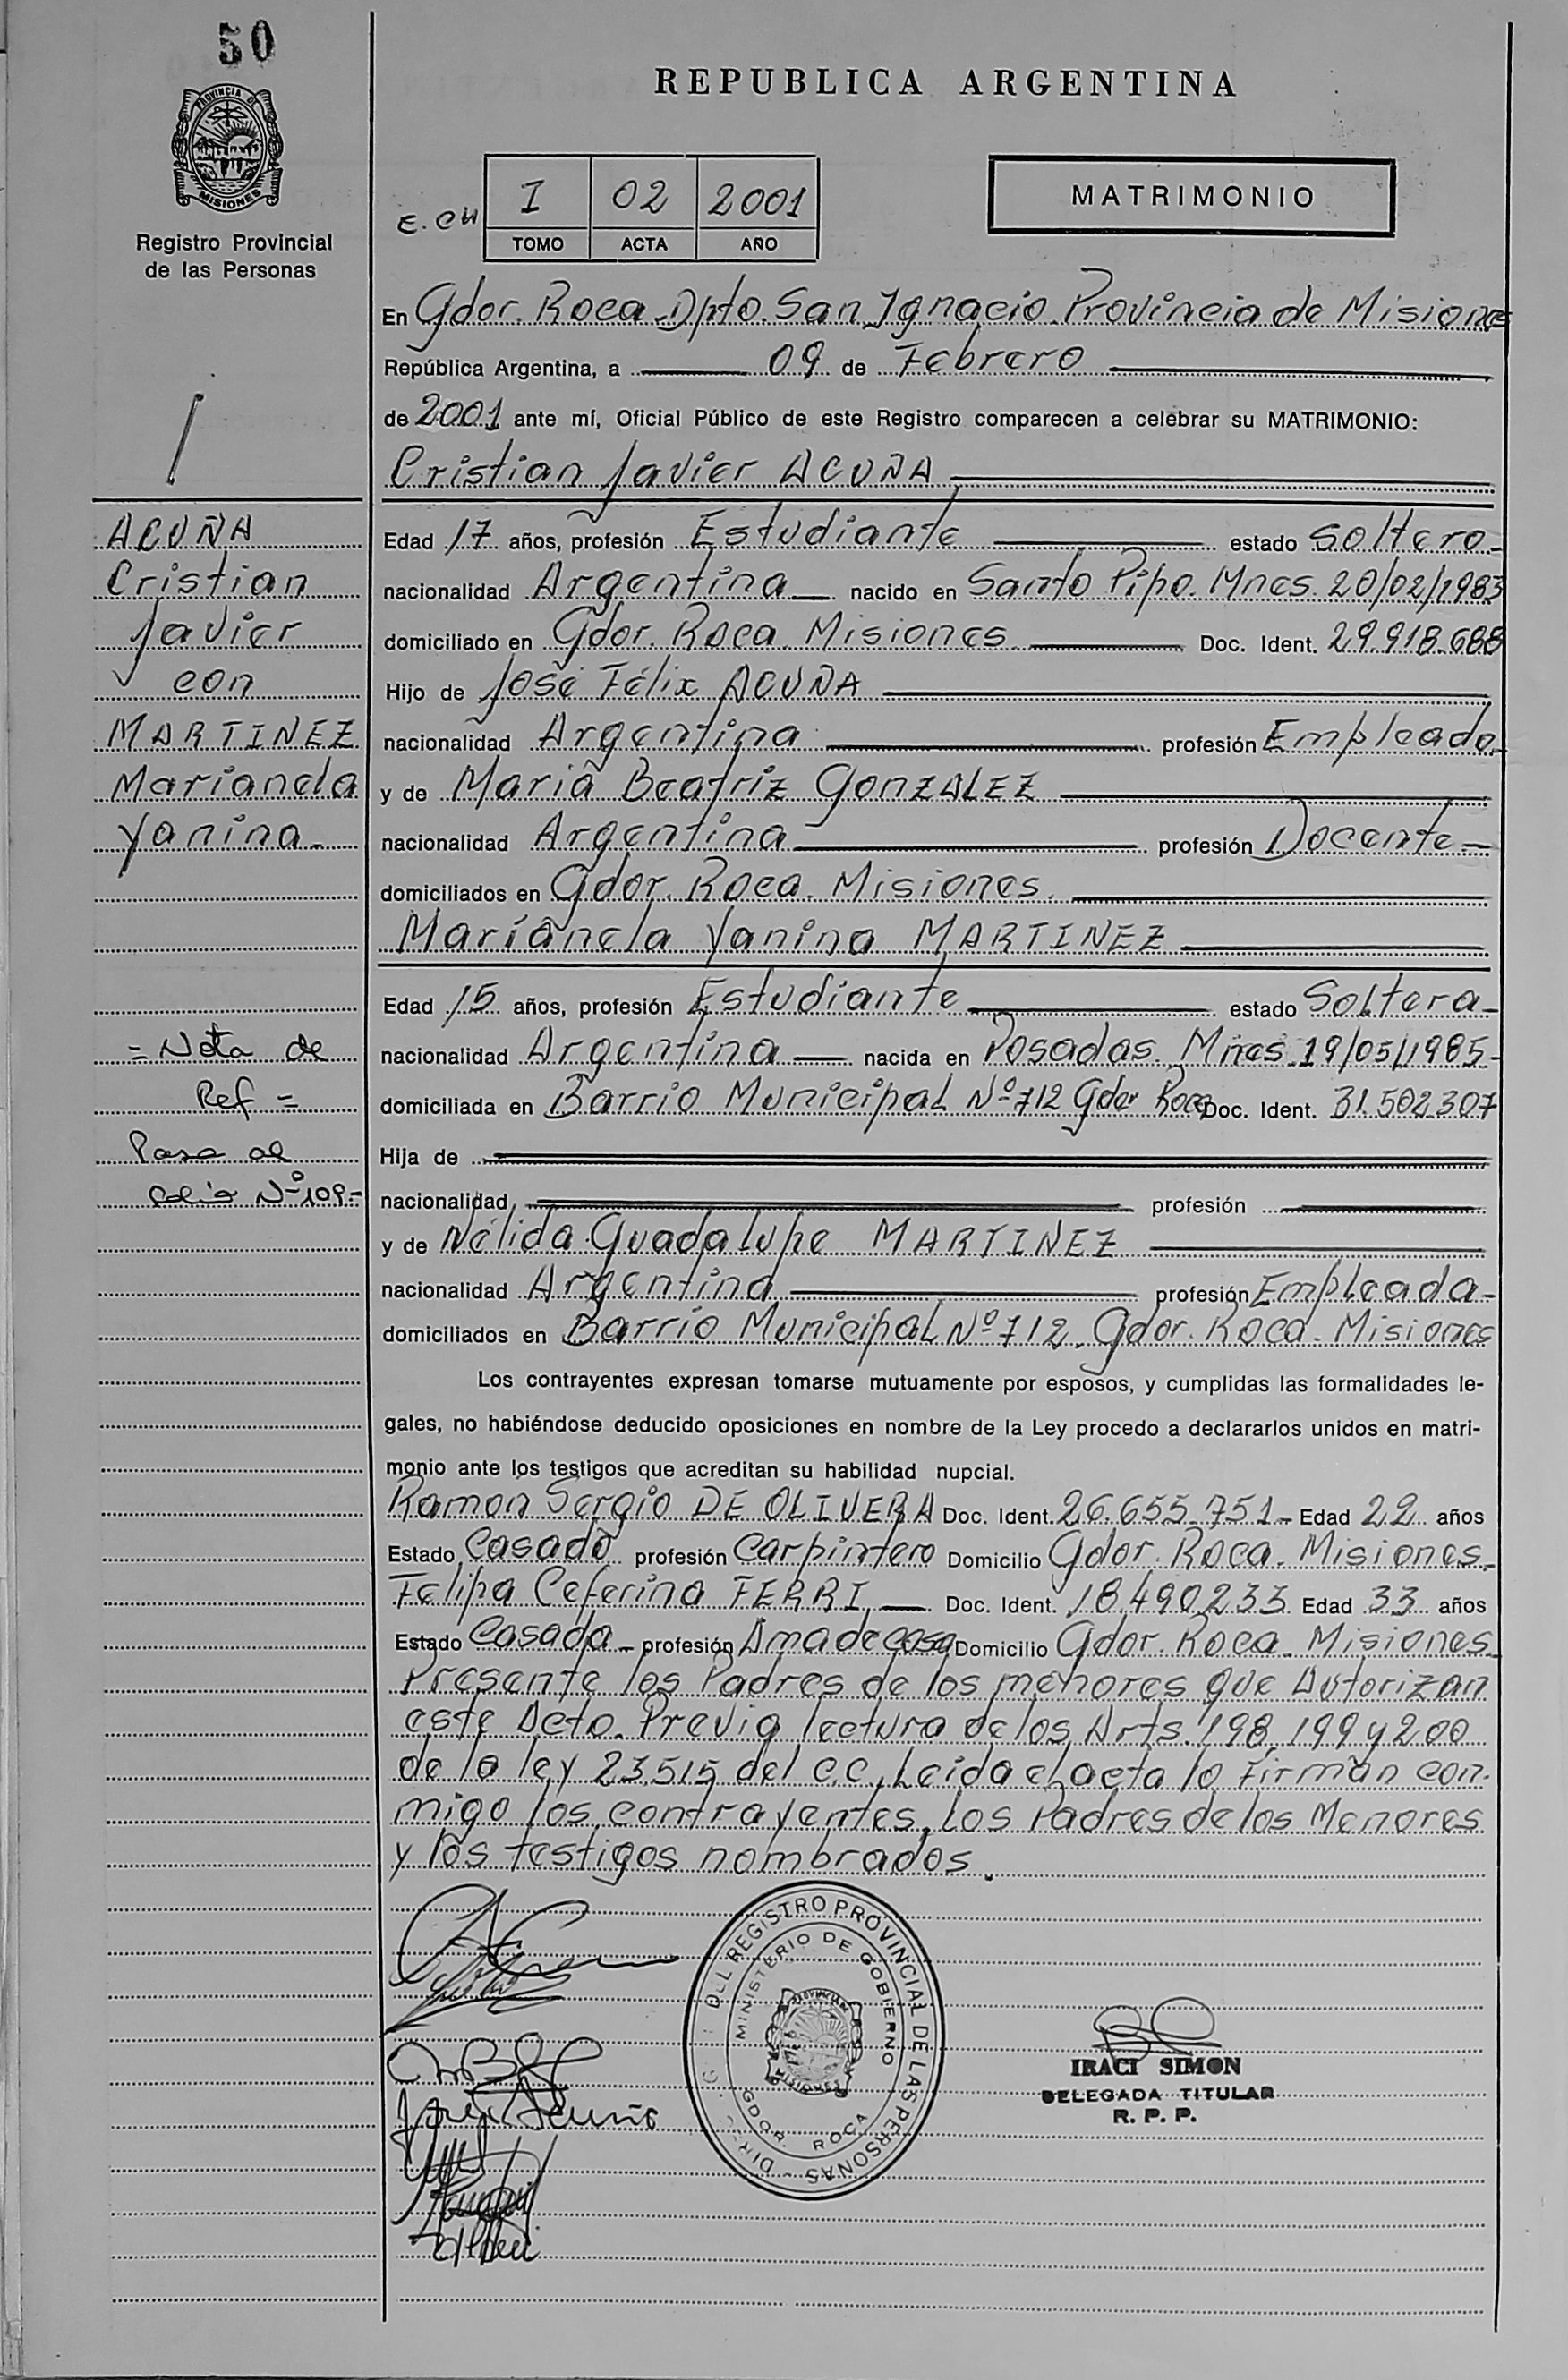 50
PROVINCIA DE
MISIONES
Registro Provincial
de las Personas
REPUBLICA ARGENTINA
E. CH
I 02 2001
TOMO ACTA AÑO
MATRIMONIO
En Gdor. Roca. Dpto. San Ignacio. Provincia de Misiones
República Argentina, a 09 de Febrero
de 2001 ante mí, Oficial Público de este Registro comparecen a celebrar su MATRIMONIO:
Cristian Javier ACUÑA
ACUÑA
Cristian
Javier
con
MARTINEZ
Marianela
Yanina.
Edad 17 años, profesión Estudiante estado Soltero
nacionalidad Argentina nacido en Santo Pipo. Mnes. 20/02/1983
domiciliado en Gdor. Roca. Misiones. Doc. Ident. 29.918.688
Hijo de José Félix ACUÑA
nacionalidad Argentina profesión Empleado
y de María Beatriz GONZALEZ
nacionalidad Argentina profesión Docente
domiciliados en Gdor. Roca. Misiones.
Marianela Yanina MARTINEZ
Edad 15 años, profesión Estudiante estado Soltera
nacionalidad Argentina nacida en Posadas. Mnes. 19/05/1985
domiciliada en Barrio Municipal Nº 712 Gdor Roca Doc. Ident. 31.502.307
Hija de
nacionalidad profesión
y de Nélida Guadalupe MARTINEZ
nacionalidad Argentina profesión Empleada
domiciliados en Barrio Municipal Nº 712. Gdor. Roca. Misiones
= Nota de
Ref =
Pasa al
folio Nº 109.-
Los contrayentes expresan tomarse mutuamente por esposos, y cumplidas las formalidades le-
gales, no habiéndose deducido oposiciones en nombre de la Ley procedo a declararlos unidos en matri-
monio ante los testigos que acreditan su habilidad nupcial.
Ramón Sergio DE OLIVERA Doc. Ident. 26.655.751 Edad 22 años
Estado Casado profesión Carpintero Domicilio Gdor. Roca. Misiones.
Felipa Ceferina FERRI Doc. Ident. 18.490.233 Edad 33 años
Estado Casada profesión Ama de casa Domicilio Gdor. Roca. Misiones
Presente los Padres de los menores que Autorizan
este Acto. Previa lectura de los Arts. 198, 199 y 200
de la ley 23.515 del C.C. Leída el acta lo Firman con-
migo los contrayentes, los Padres de los Menores
y los testigos nombrados.
REGISTRO PROVINCIAL DE LAS PERSONAS
MINISTERIO DE GOBIERNO
GDOR. ROCA
IRACI SIMON
DELEGADA TITULAR
R. P. P.